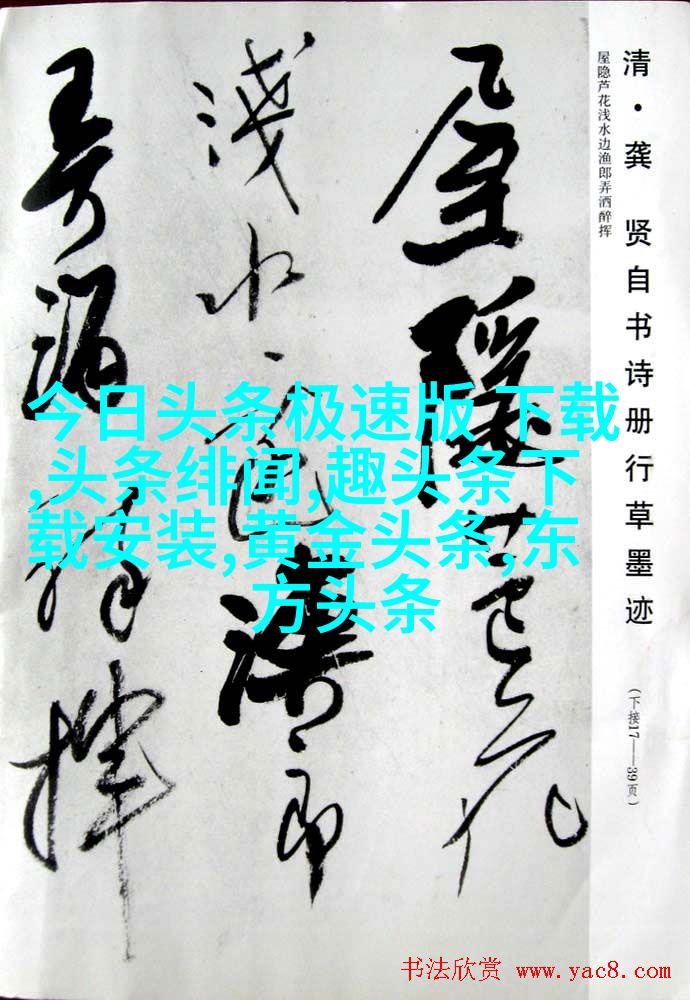 清·龚 贤自书诗册行草墨迹
屋隐芦花浅水边渔郎弄洒醉挥
(下接17——39页)
屋隱蘆花
淺水邊漁郎
弄酒醉揮
今日头条极速版 下载
,头条绯闻,趣头条下
载安装,黄金头条,东
方头条
书法欣赏 www.yac8.com